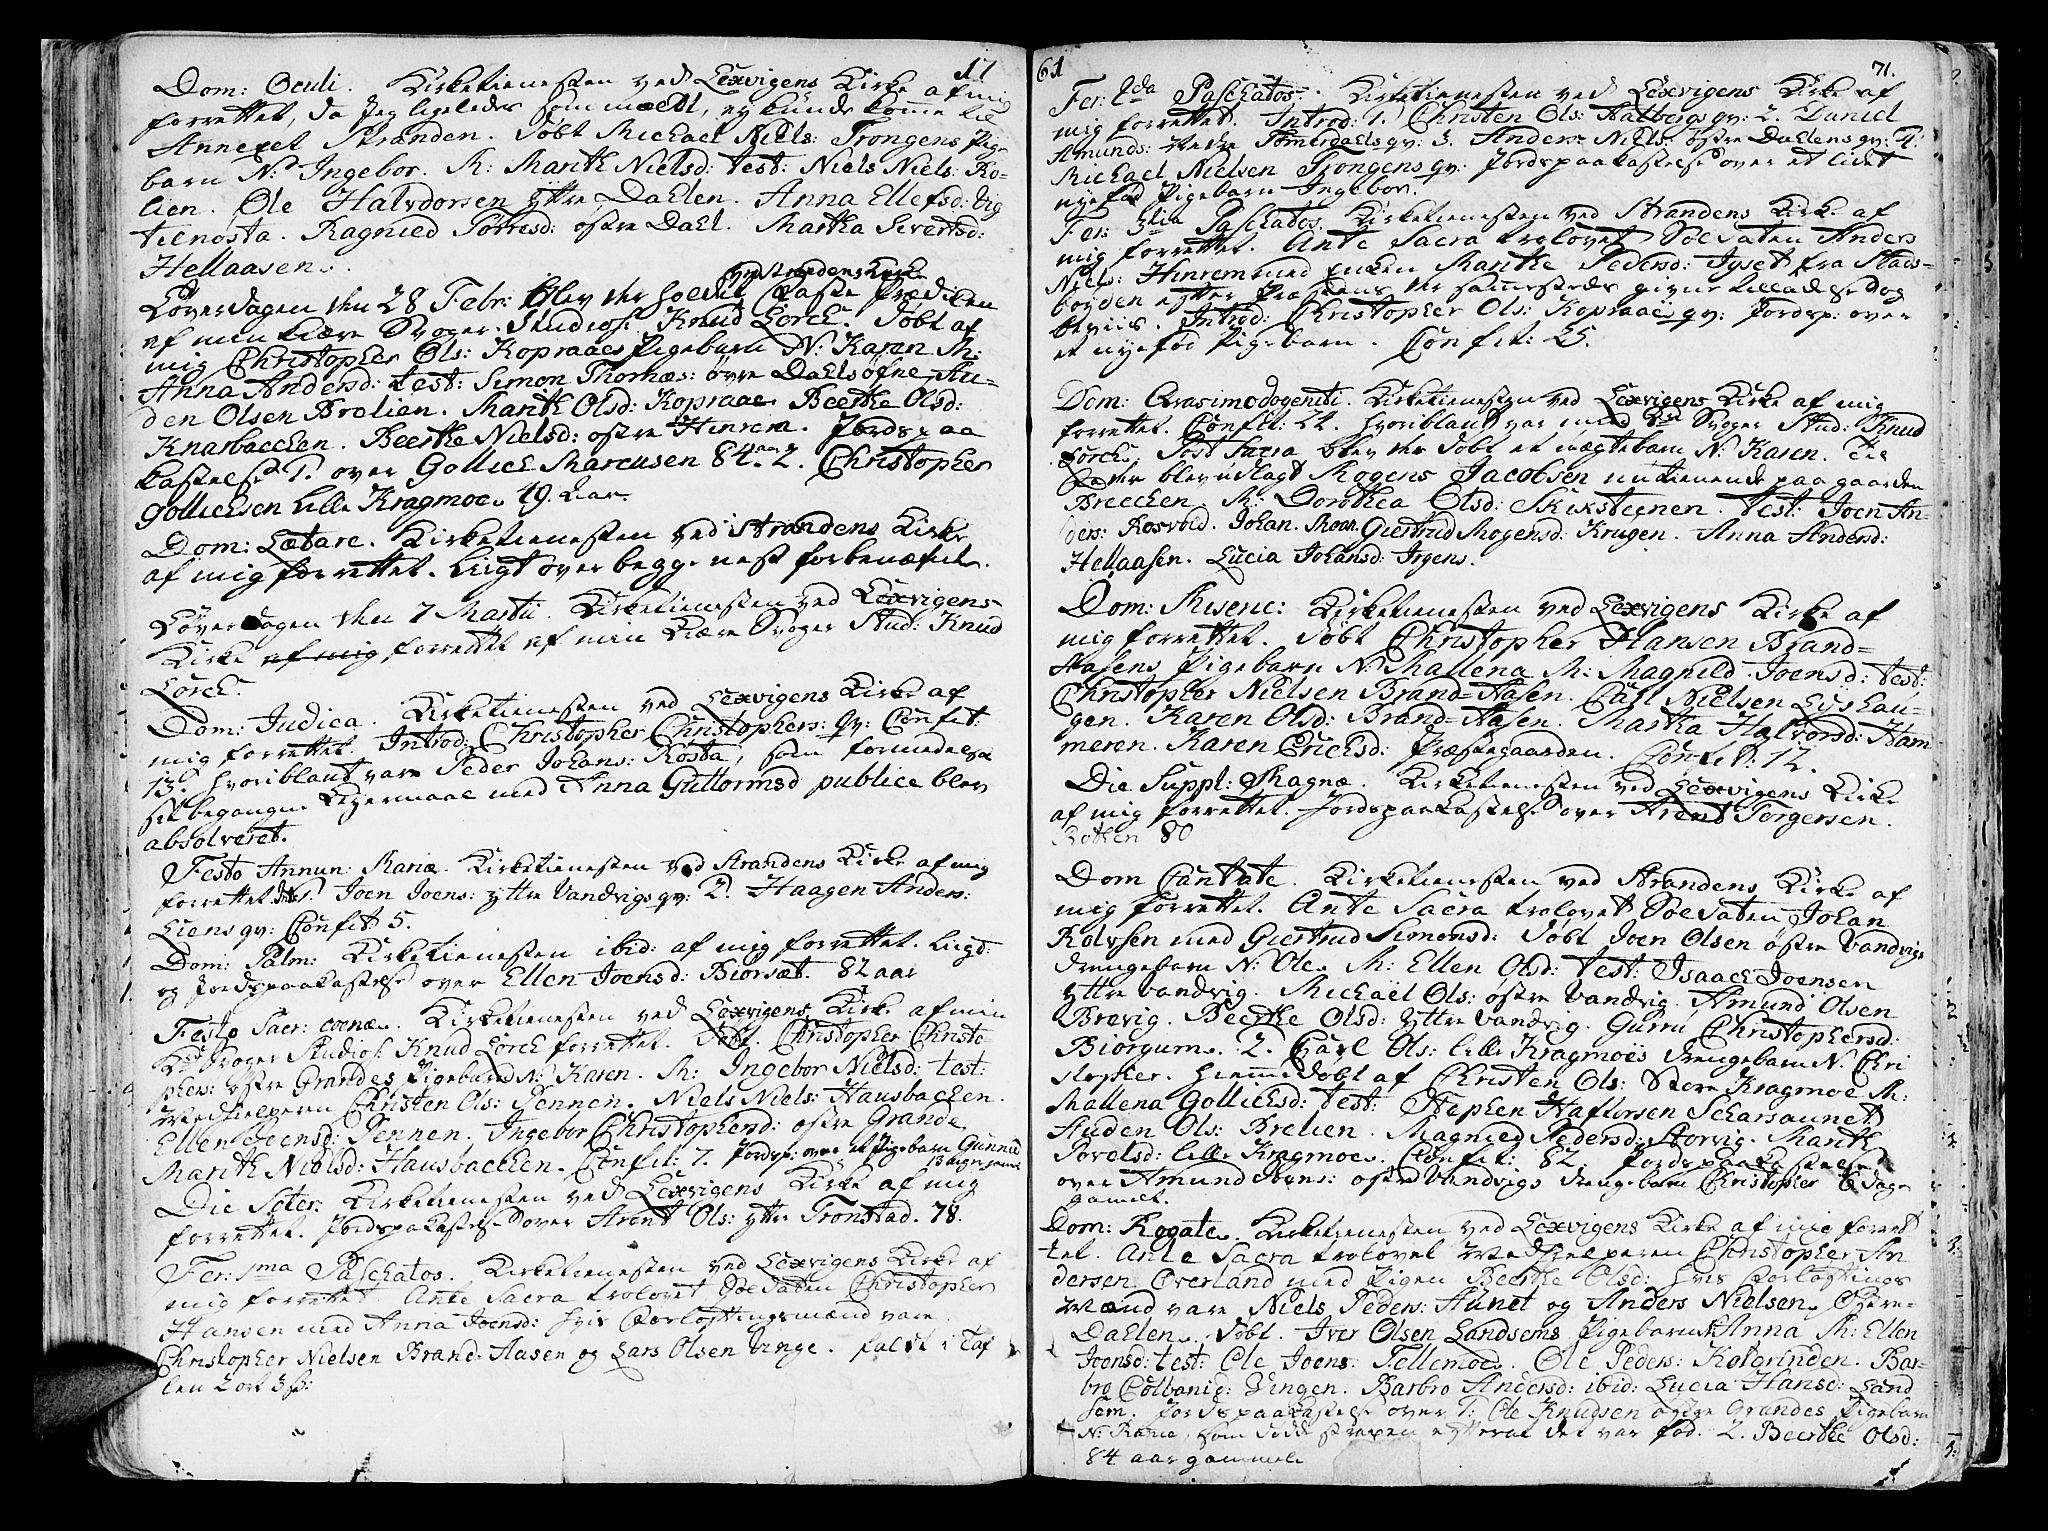 17
Dom: Oculi. Kirketienesten ved Lexvigens Kirke af mig
forrettet, da jeg ligeledes som mældt, ey kunde komme til
Annexet Stranden. Døbt Michael Niels: Trongens Pige
barn N: Ingebor. M: Marith Nielsd: test: Niels Niels: Ro-
lien. Ole Halvdorsen yttre Dahlen. Anna Ellefsd: Vig
tilnosta. Ragnied Torresd: østre Dahl. Martha Sivertsd:
Hellaasen.
ved Strandens Kirke
Løverdagen den 28 Febr: blev der holdt Faste Prædiken
af min kiære Svoger Studios: Knud Lorch. Døbt af
mig Christopher Ols: Kopraaes Pigebarn N: Karen M:
Anna Andersd: test: Simon Thomæs: øvre Dahlsøfne, Au-
den Olsen Brølien. Marith Olsd: Kopraae Beerthe Olsd:
Knarbacken. Beerthe Nielsd: østre Hinrem. Jordspaa
kastelse 1. over Gollich Marcusen 84 aar 2. Christopher
Gollichsen lille Kragmoe 49. Aar.
Dom: Lætare. Kirketienesten ved Strandens Kirke
af mig forrettet. Ligt over begge nest forbenæfnte.
Løverdagen den 7 Martii. Kirketienesten ved Lexvigens
Kirke af mig forrettet af min Kiære Svoger Stud: Knud
Lorch.
Dom: Judica. Kirketienesten ved Lexvigens Kirke af
mig forrettet. Introd: Christopher Christophers: qv: Confit:
13. hvoriblant var Peder Johans: Rosta, som formedelst
sit begangne Leyermaal med Anna Guttormsd publice blev
absolveret.
Festo Annun: Mariæ. Kirketienesten ved Strandens Kirke af mig
forrettet. 1. Joen Joens: yttre Vandvigs qv: 2. Haagen Anders:
Liens qv: Confit: 5.
Dom: Palm: Kirketienesten ibid: af mig forrettet. Ligt
og Jordspaakastelse over Ellen Joensd: Biørsæt. 82 aar
Festo Sacr: coenæ. Kirketienesten ved Lexvigens Kirke af min
Svoger Studios: Knud Lorch forrettet. Døbt. Christopher Christo
phers: østre Grandes Pigebarn N: Karen. M: Ingebor Nielsd: test:
Medhielperen Christen Ols: Pennen. Niels Niels: Hausbacken.
Ellen Joensd: Pennen. Ingebor Christophersd: østre Grande
Marith Nielsd: Hausbacken. Confit: 7. Jordsp: over et Pigebarn Gunnild
Die Soter: Kirketienesten ved Lexvigens Kirke af mig
forrettet. Jordspaakastelse over Arent Ols: yttre Tronstad. 78.
Fer: 1ma Paschatos. Kirketienesten ved Lexvigens Kirke af
mig forrettet Ante Sacra trolovet Soldaten Christopher
Hansen med Anna Joensd: hvis Forløftningsmænd vare
Christopher Nielsen Brand-Aasen og Lars Olsen Vinge. faldt i Taf
len 2 ort 3 s:
61
71.
Fer: 2da Paschatos. Kirketienesten ved Lexvigens Kirke af
mig forrettet. Introd: 1. Christen Ols: Hatbergs qv: 2. Daniel
Amunds: nedre Tømerdahls qv: 3. Anders Niels: østre Dahlens qv: 4.
Michael Nielsen Trongens qv: Jordspaakastelse over et lidet
nyefød Pigebarn Ingebor.
Fer: 3tia Paschatos. Kirketienesten ved Strandens Kirke af
mig forrettet. Ante Sacra trolovet Soldaten Anders
Niels: Hinrem med Enken Marithe Pedersd: Tyset fra Stads-
bøyden efter Præstens der sammesteds givne tilladelse dog
beviis. Introd: Christopher Ols: Kopraaes qv: Jordsp: over
et nyefød Pigebarn. Confit: 25.
Dom: Qvasimodogeniti. Kirketienesten ved Lexvigens Kirke af mig
forrettet. Confit: 24. hvoriblant var med Svoger Stud: Knud
Lorch. Post Sacra blev der døbt et uægtebarn N: Karen. Til
Fader blev udlagt Mogens Jacobsen nu tienende paa gaarden
Brecken M: Dorothea Olsd: Skiksteenen. Test: Joen An-
ders: Rosvold. Johan Giertrud Mogensd: Krugen. Anna Andersd:
Hellaasen. Lucia Johansd: Irgens.
Dom: Miseric: Kirketienesten ved Lexvigens Kirke af
mig forrettet. Døbt Christopher Hansen Brand-
Aasens Pigebarn N: Mallena M: Magnild Joensd: test:
Christopher Nielsen Brand-Aasen. Carl Nielsen Lyshau-
gen. Karen Olsd: Brand-Aasen. Martha Halvorsd: Ham
meren. Karen Erichsd: Præstegaarden. Confit: 12.
Die Suppl: Magnæ. Kirketienesten ved Lexvigens Kirke
af mig forrettet. Jordspaakastelse over Arent Torgersen.
Rotten 80
Dom Cantate. Kirketienesten ved Strandens Kirke af
mig forrettet. Ante Sacra trolovet Soldaten Johan
Rolvsen med Giertrud Simonsd: Døbt Joen Olsen østre Vandvigs
drengebarn N: Ole. M: Ellen Olsd: test: Isaach Joensen
yttre Vandvig. Michael Ols: østre Vandvig. Amund Olsen
Brævig. Beerthe Olsd: yttre Vandvig. Guru Christophersd:
Biørgum. 2. Carl Ols: lille Kragmoes drengebarn N. Chri
stopher. hiemmedøbt af Christen Ols: Store Kragmoe M:
Mallena Gollichsd: test: Stephen Haftorsen Scharsaunet
Auden Ols: Brelien. Magnied Pedersd: Storvig. Marith
Povelsd: lille Kragmoe. Confit: 82. Jordspaakastelse
over Amund Joens: østre Vandvigs drengebarn Christopher 6 dage
gamelt.
Dom: Rogate. Kirketienesten ved Lexvigens Kirke af mig forret
tet. Ante Sacra trolovet Medhielperen Christopher An
dersen Overland med Pigen Beerthe Olsd: hvis Forløftnings
Mænd vare Niels Peders: Aunet og Anders Nielsen Østre-
Dahlen. Døbt. Iver Olsen Landsems Pigebarn N: Anna M: Ellen
Joensd: test: Ole Joens: Tellemoe. Ole Peders: Kolgrinden. Bar-
bro Colbanid: Vingen. Barbro Andersd: ibid: Lucia Hansd: Land
sem. Jordspaakastelse over 1: Ole Knudsen østre Grandes Pigebarn
N: Karen, som døde strax efterat det var fød. 2. Beerthe Olsd:
84 aar gammel.